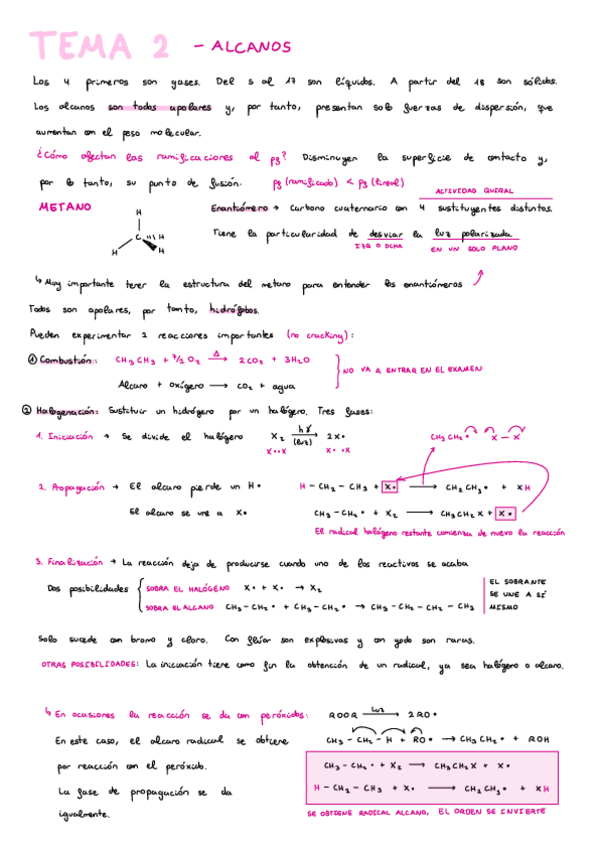 TEMA 2 - ALCANOS
Los 4 primeros son gases. Del 5 al 17 son líquidos. A partir del 18 son sólidos.
Los alcanos son todos apolares y, por tanto, presentan solo fuerzas de dispersión, que
aumentan con el peso molecular.
¿Cómo afectan las ramificaciones al pf? Disminuyen la superficie de contacto y,
por lo tanto, su punto de fusión. pf (ramificado) < pf (lineal)
ACTIVIDAD QUIRAL
METANO Enantiómero → Carbono cuaternario con 4 sustituyentes distintos.
H
C H
H H
Tiene la particularidad de desviar la luz polarizada
IZQ O DCHA EN UN SOLO PLANO
↳ Muy importante tener la estructura del metano para entender los enantiómeros
Todos son apolares, por tanto, hidrófobos.
Pueden experimentar 2 reacciones importantes (no cracking):
① Combustión: CH3 CH3 + 7/2 O2 →Δ 2CO2 + 3H2O
Alcano + oxígeno → CO2 + agua
NO VA A ENTRAR EN EL EXAMEN
② Halogenación: Sustituir un hidrógeno por un halógeno. Tres fases:
1. Iniciación → Se divide el halógeno X2 →hγ (luz) 2X• CH3 CH2• X - X
X••X X• •X
2. Propagación → El alcano pierde un H• H - CH2 - CH3 + X• → CH2 CH3• + XH
El alcano se une a X• CH3 - CH2• + X2 → CH3CH2X + X•
El radical halógeno restante comienza de nuevo la reacción
3. Finalización → La reacción deja de producirse cuando uno de los reactivos se acaba
Dos posibilidades
SOBRA EL HALÓGENO X• + X• → X2
SOBRA EL ALCANO CH3 - CH2• + CH3 - CH2• → CH3 - CH2 - CH2 - CH3
EL SOBRANTE
SE UNE A SÍ
MISMO
Solo sucede con bromo y cloro. Con flúor son explosivas y con yodo son raras.
OTRAS POSIBILIDADES: La iniciación tiene como fin la obtención de un radical, ya sea halógeno o alcano.
↳ En ocasiones la reacción se da con peróxidos: ROOR →luz 2RO•
En este caso, el alcano radical se obtiene CH3 - CH2 - H + RO• → CH3 CH2• + ROH
por reacción con el peróxido. CH3 - CH2• + X2 → CH3CH2X + X•
La fase de propagación se da H - CH2 - CH3 + X• → CH2 CH3• + XH
igualmente. SE OBTIENE RADICAL ALCANO, EL ORDEN SE INVIERTE